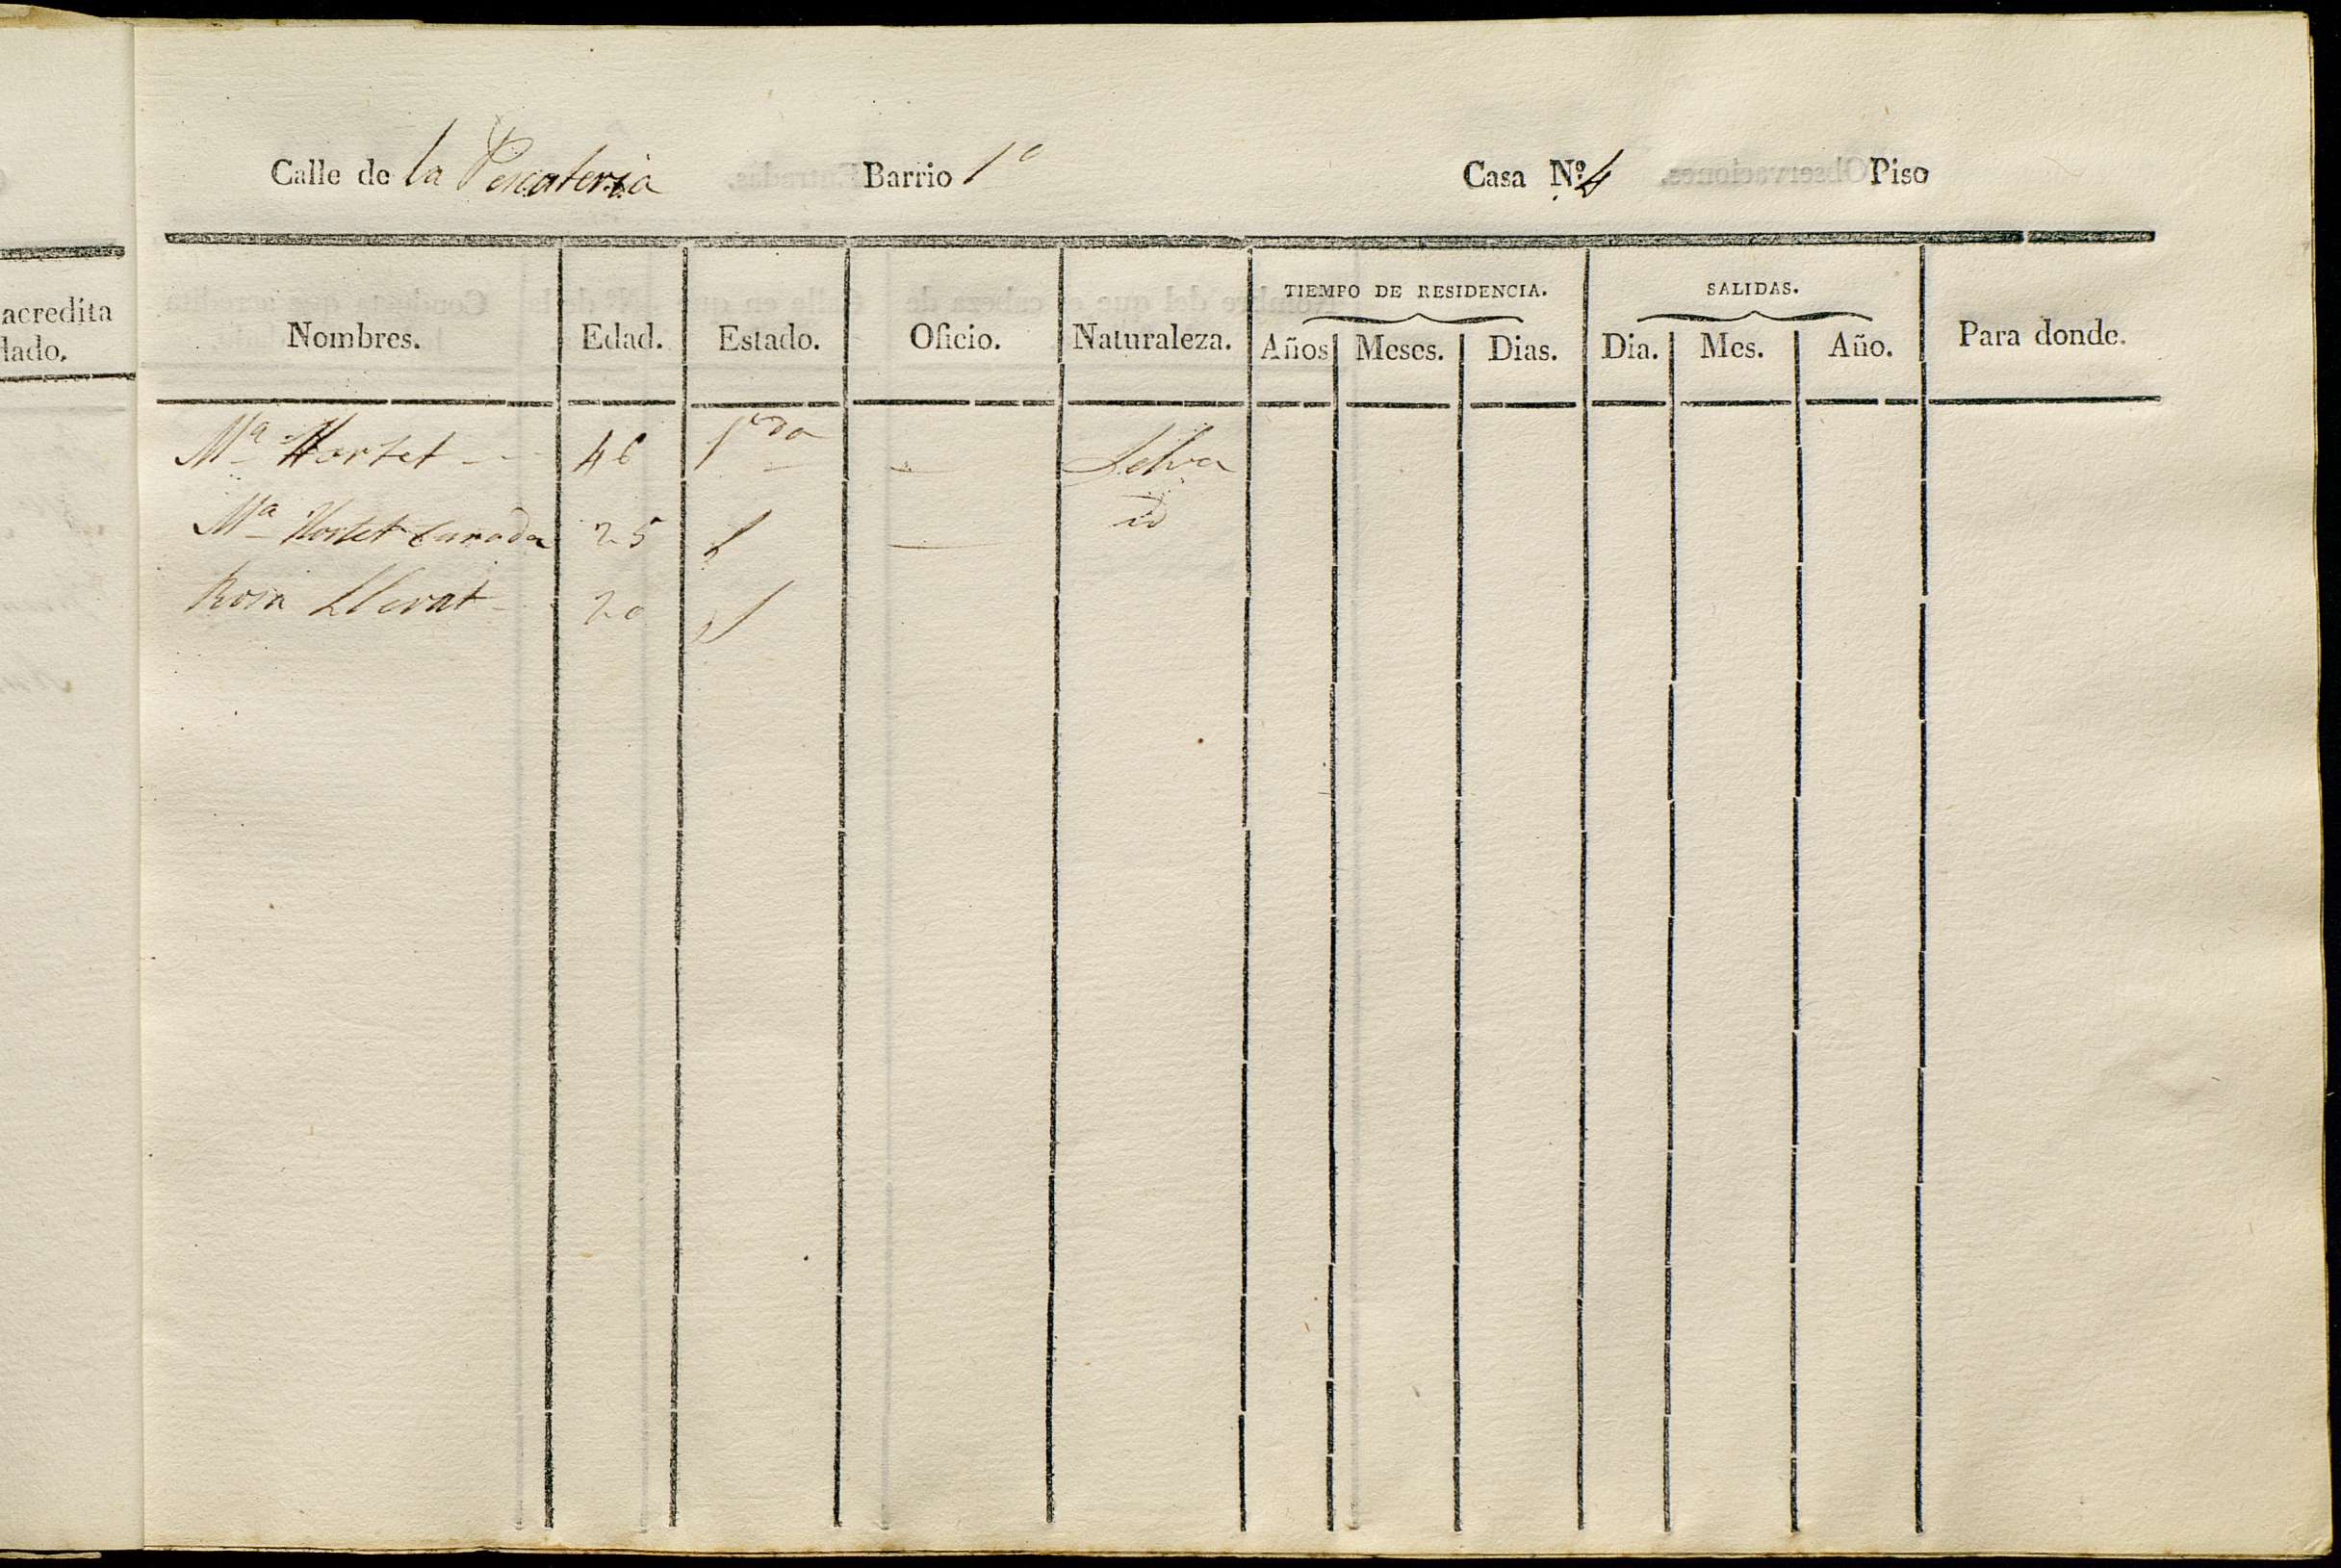 Calle de la Pescateria Barrio 1º Casa Nº 4 Piso
acredita
lado.
Nombres. Edad. Estado. Oficio. Naturaleza. TIEMPO DE RESIDENCIA. Años Meses. Dias. SALIDAS. Dia. Mes. Año. Para donde.
Mª Hortet 46 — Selva
Mª Hortet 25 — id
Rosa Llevat 20